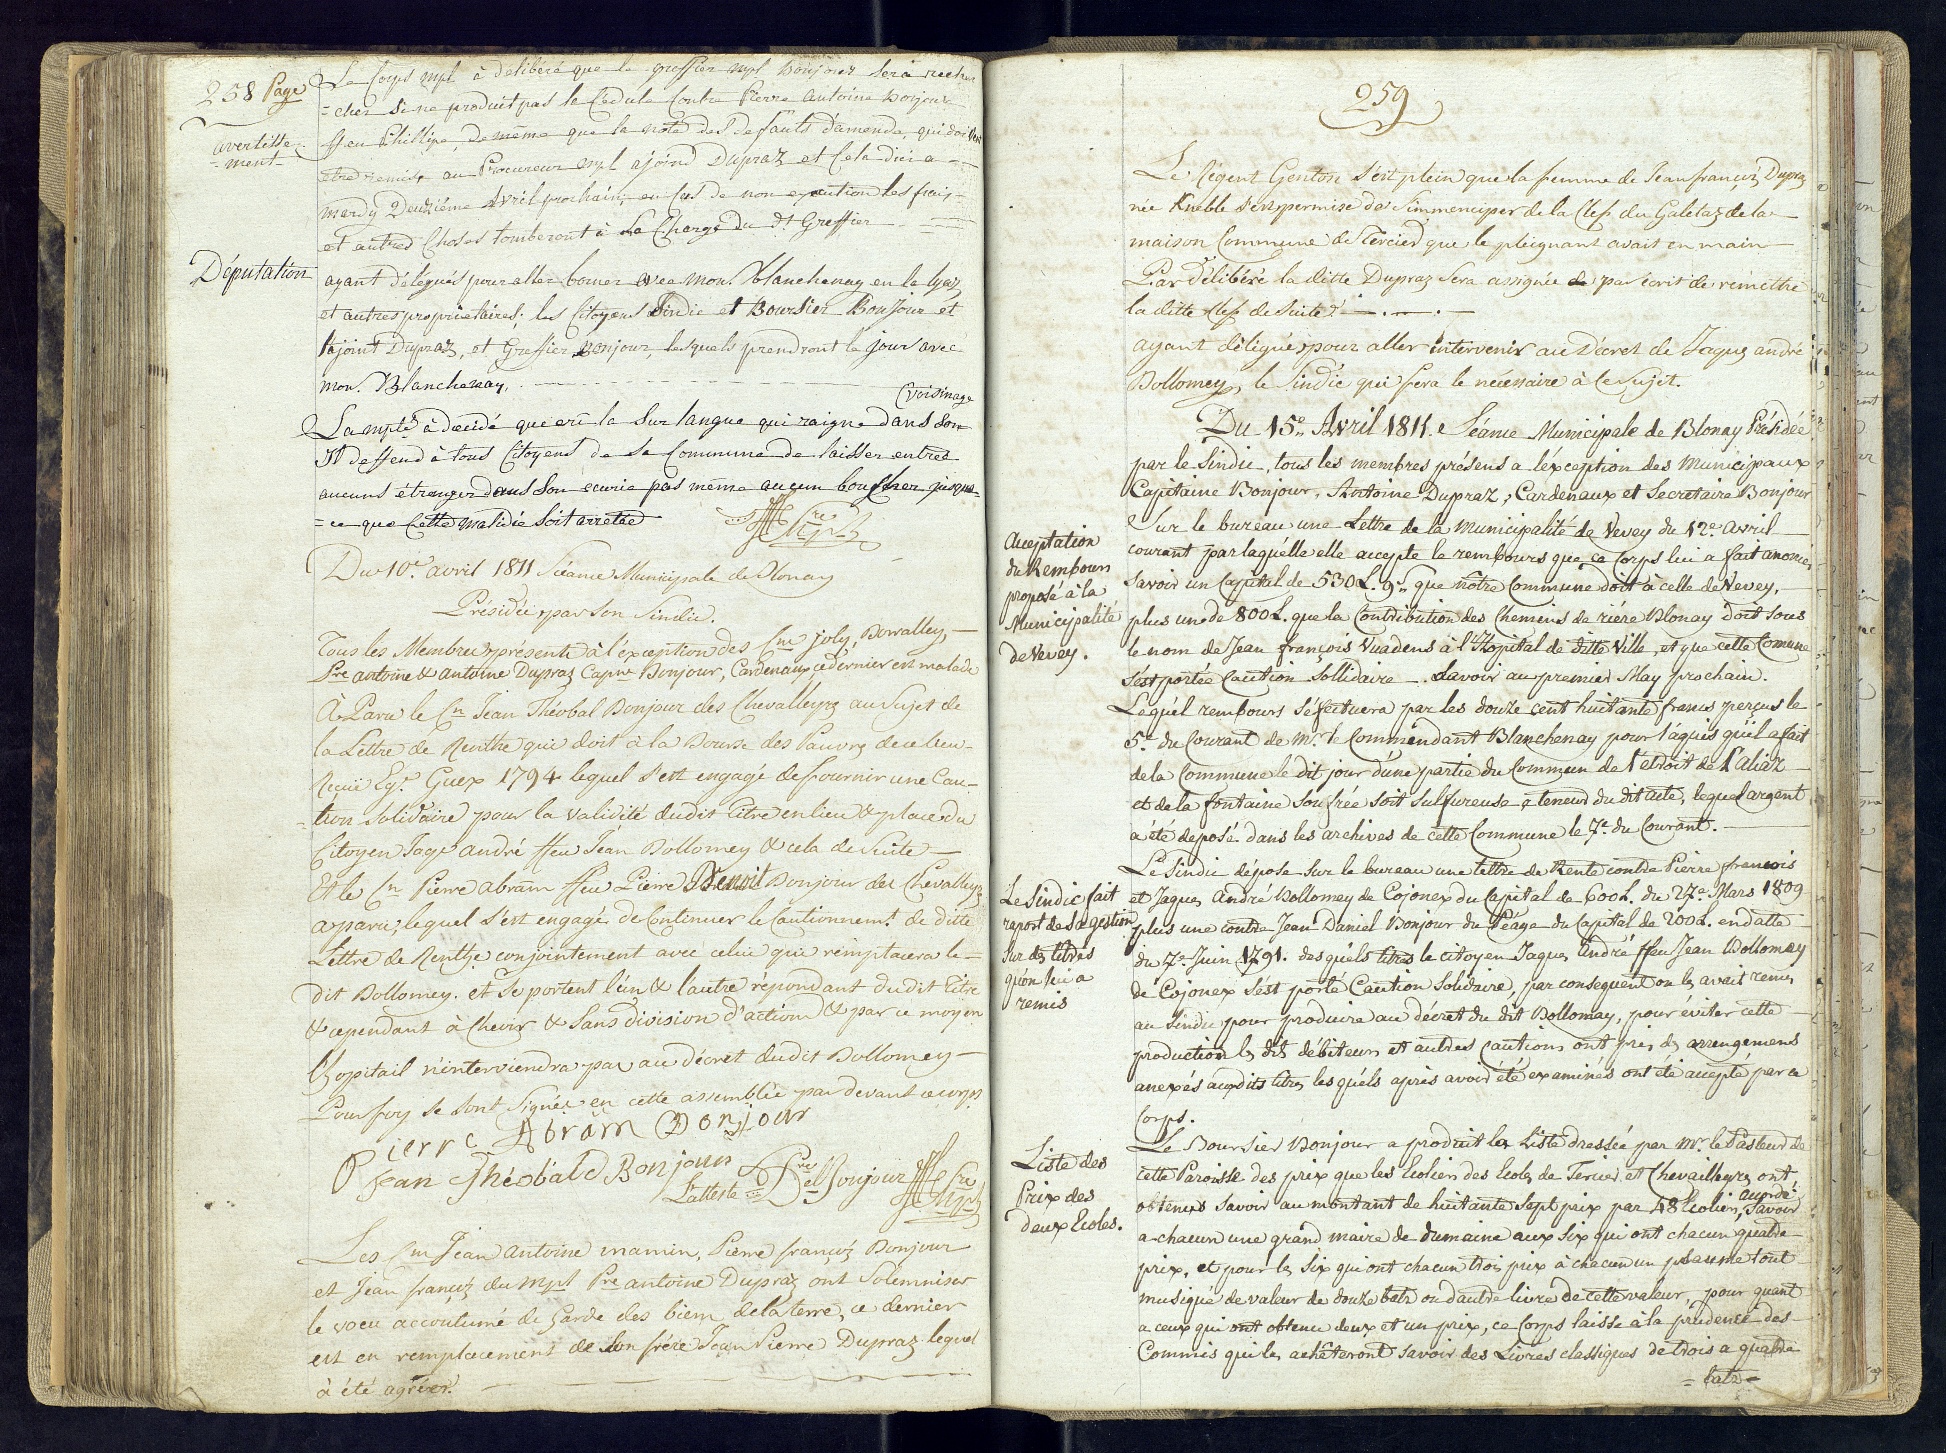 238 Page
Le Corps mpl à délibéré que le greffier mpl Bonjour sera recher
= cher si ne produit pas le Cedule Contre Pierre antoine Bonjour
avertisse=
= ment
ffeu Phillipe, de même que la note des defauts d'amende, qui doivent
être remis, au Procureur mpl ajoind Dupraz et Cela d'ici a
mardy Deuxiéme Avril prochain, en Cas de non execution les frais
et autres Choses tomberont à La Charge du dt Greffier
Députation
ayant délégués pour aller borner avec mon. Blanchenay en la lyaz
et autres proprietaires: les Citoyens Sindic et Boursier Bonjour et
Ajoint Dupraz, et Greffier Bonjour, lesquels prendront le jour avec
mon. Blanchenay,
(voisinage
La mpté à decidé que vû la Sur langue qui raigne dans Son
Il deffend à tous Citoyens de Sa Commune de laisser entrer
aucuns étranger dans Son ecurie pas même aucun boucher jusqu=
= ce que Cette maladie Soit arretée
Du 10e avril 1811 Séance Municipale de Blonay
Présidée par Son Sindic.
Tous les Membres présents à l'éxception des Cns joly, Dovalley,
Pre antoine & antoine Dupraz Capne Bonjour, Cardenaux ce dernier est malade
À Paru le Cn Jean Théobal Bonjour des Chevalleyrs au Sujet de
la Lettre de Renthe qui doit à la Bourse des Pauvres de ce lieu
Reçue Egr. Guex 1794 lequel S'est engagé de fournir une Cau=
= tion Solidaire pour la validité dudit Titre en lieu & place du
Citoyen Jaqs andré ffeu Jean Dollomey & cela de Suite
Et le Cn Pierre abram ffeu Pierre Benoit Bonjour des Chevalleyrs
a paru; lequel S'est engagé de Continuer le Cautionnemt. de ditte
Lettre de Renthe conjointement avec celui qui remplacera le
dit Dollomey. et Se portent l'un & l'autre répondant dudit Titre
& cependant à Chevir & Sans division d'action & par ce moyen
l'hopitail n'interviendra pas au décret dudit Dollomey
Pour foy se sont Signés en cette assemblée par devant ce corps
Pierre Abram Bonjour
Jean Théobald Bonjour
L'atteste
Bonjour
Les Cns Jean antoine mamin, Pierre françois Bonjour
et Jean françois du mpl Pre antoine Dupraz ont Solemniser
le voeu accoutumé de Garde des biens de la terre, ce dernier
est en remplacement de Son frère Jean Pierre Dupraz lequel
à été agréer.
259
Le Régent Genton S'est plein que la femme de Jean françois Dupraz
née Kneble S'est permise de S'immenciper de la Clef du Galetaz de la
maison Commune de Tercier que le pleignant avait en main
Par délibéré la ditte Dupraz Sera assignée de par écrit de remettre
la ditte Clef de Suite.
ayant délégué pour aller intervenir au Décret de Jaques andré
Dollomey, le Sindic qui fera le nécessaire à ce Sujet.
Du 15e Avril 1811. Séance Municipale de Blonay Présidée
par le Sindic, tous les membres présens a l'éxception des Municipaux
Capitaine Bonjour, Antoine Dupraz, Cardenaux et Secretaire Bonjour
Acceptation
du Rembours
proposé à la
Municipalité
de Vevey.
Sur le bureau une Lettre de la Municipalité de Vevey du 12e avril
courant par laquelle elle accepte le rembours que ce Corps lui a fait anoncé,
Savoir un Capital de 530 L. 9 que nôtre Commune doit à celle de Vevey,
plus un de 800 L. que la Contribution des Chemins de riére Blonay doit sous
le nom de Jean françois Vuadens à l'Hopital de ditte Ville, et que cette Comune
s'est portée Caution Sollidaire. Savoir au premier May prochain.
Lequel rembours S'éffectuera par les douze cent huitante francs perçus le
5e du Courant de Mr le Commendant Blanchenay pour l'aquis qu'il a fait
de la Commune le dit jour d'une partie du Commun de l'etroit de l'aliaz
et de la fontaine Soufrée soit Sulfureuse a teneur du dit acte, lequel argent
a été deposé dans les archives de cette Commune le 7e du Courant.
Le Sindic fait
raport de Sa gestion
sur des titres
qu'on lui a
remis
Le Sindic dépose Sur le bureau une Lettre de Rente contre Pierre françois
et Jaques André Dollomey de Cojonex du Capital de 600 L. du 27e Mars 1809
plus une contre Jean Daniel Bonjour du Péage du Capital de 200 L. en datte
du 7e Juin 1791. desquels titres le citoyen Jaques André ffeu Jean Dollomey
de Cojonex S'est porté Caution Solidaire, par consequent on les avait remis
au Sindic pour produire au décret du dit Dollomay, pour éviter cette
production les dits débiteurs et autres Cautions ont pris des arrengemens
anexés auxdits titres lesquels après avoir été examinés ont été accepté par ce
Corps.
Liste des
Prix des
deux Ecoles.
Le Boursier Bonjour a produit la Liste dressée par Mr le Pasteur de
cette Paroisse des prix que les Ecoliers des Ecoles de Tercier et Chevailleyres ont
obtenus Savoir au montant de huitante Sept prix par 48 Ecoliers, accordé: Savoir
a chacun une grand maire de dumaine aux Six qui ont chacun quatre
prix, et pour les Six qui ont chacun trois prix à chacun un psaume tout
musique de valeur de douze batz ou d'autre livre de cette valeur, pour quant
a ceux qui ont obtenu deux et un prix, ce Corps laisse à la prudence des
Commis qui les achêteront Savoir des Livres classiques de trois a quatre
= batz =